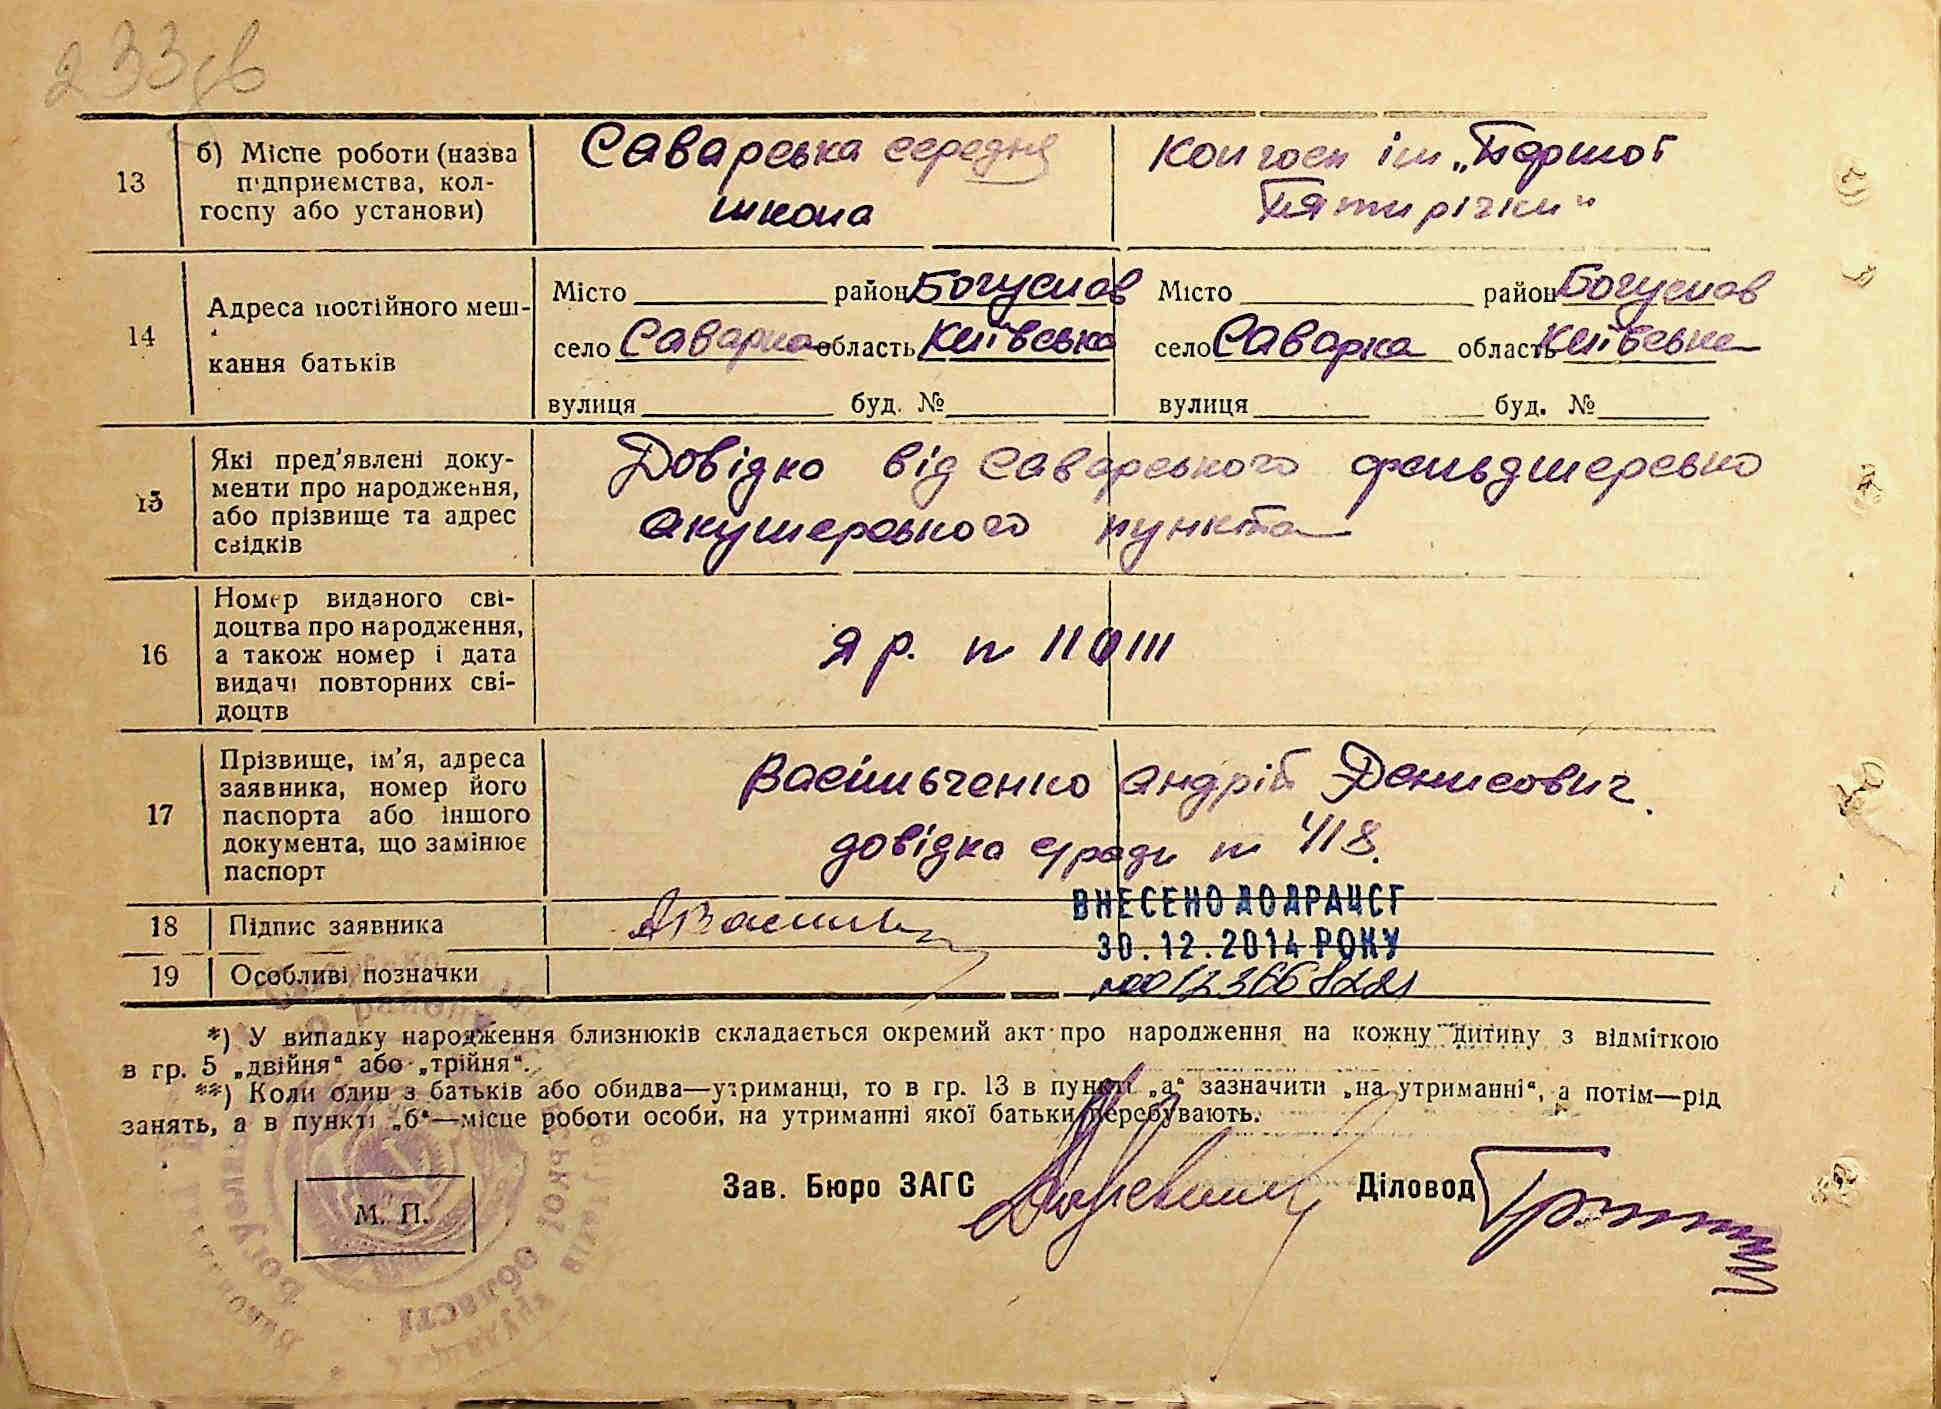 233зв
13
б) Місце роботи (назва
підприємства, кол-
госпу або установи)
Саварська середня
школа
Колгосп ім „Першої
Пятирічки"
14
Адреса постійного меш-
кання батьків
Місто район Богуслав
село Саварка область Київська
вулиця буд. №
Місто район Богуслав
село Саварка область Київська
вулиця буд. №
15
Які пред'явлені доку-
менти про народження,
або прізвище та адрес
свідків
Довідка від Саварського фельдшерсько
акушерського пункта
16
Номер виданого сві-
доцтва про народження,
а також номер і дата
видачі повторних сві-
доцтв
Яр. №
17
Прізвище, ім'я, адреса
заявника, номер його
паспорта або іншого
документа, що замінює
паспорт
Васильченко Андрій Денисович.
довідка с/ради № 418.
18
Підпис заявника
АВасильч
ВНЕСЕНО ДО ДРАЦСГ
30.12.2014 РОКУ
19
Особливі позначки
*) У випадку народження близнюків складається окремий акт про народження на кожну дитину з відміткою
в гр. 5 „двійня“ або „трійня“.
**) Коли один з батьків або обидва—утриманці, то в гр. 13 в пункті „а“ зазначити „на утриманні“, а потім—рід
занять, а в пункті „б“—місце роботи особи, на утриманні якої батьки перебувають.
Зав. Бюро ЗАГС
Діловод
М. П.
області